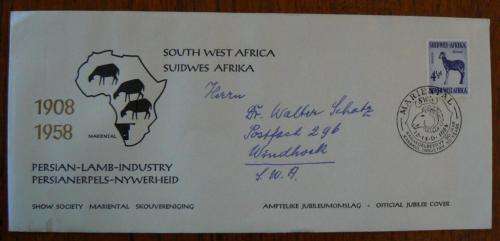 SOUTH WEST AFRICA
SUIDWES AFRIKA
1908
1958
MARIENTAL
PERSIAN-LAMB-INDUSTRY
PERSIANERPELS-NYWERHEID
SHOW SOCIETY MARIENTAL SKOUVERENIGING
AMPTELIKE JUBILEUMOMSLAG - OFFICIAL JUBILEE COVER
Herrn
Dr. Walter Schatz
Postfach 296
Windhoek
S.W.A.
SUIDWES-AFRIKA
4½d
MARIENTAL